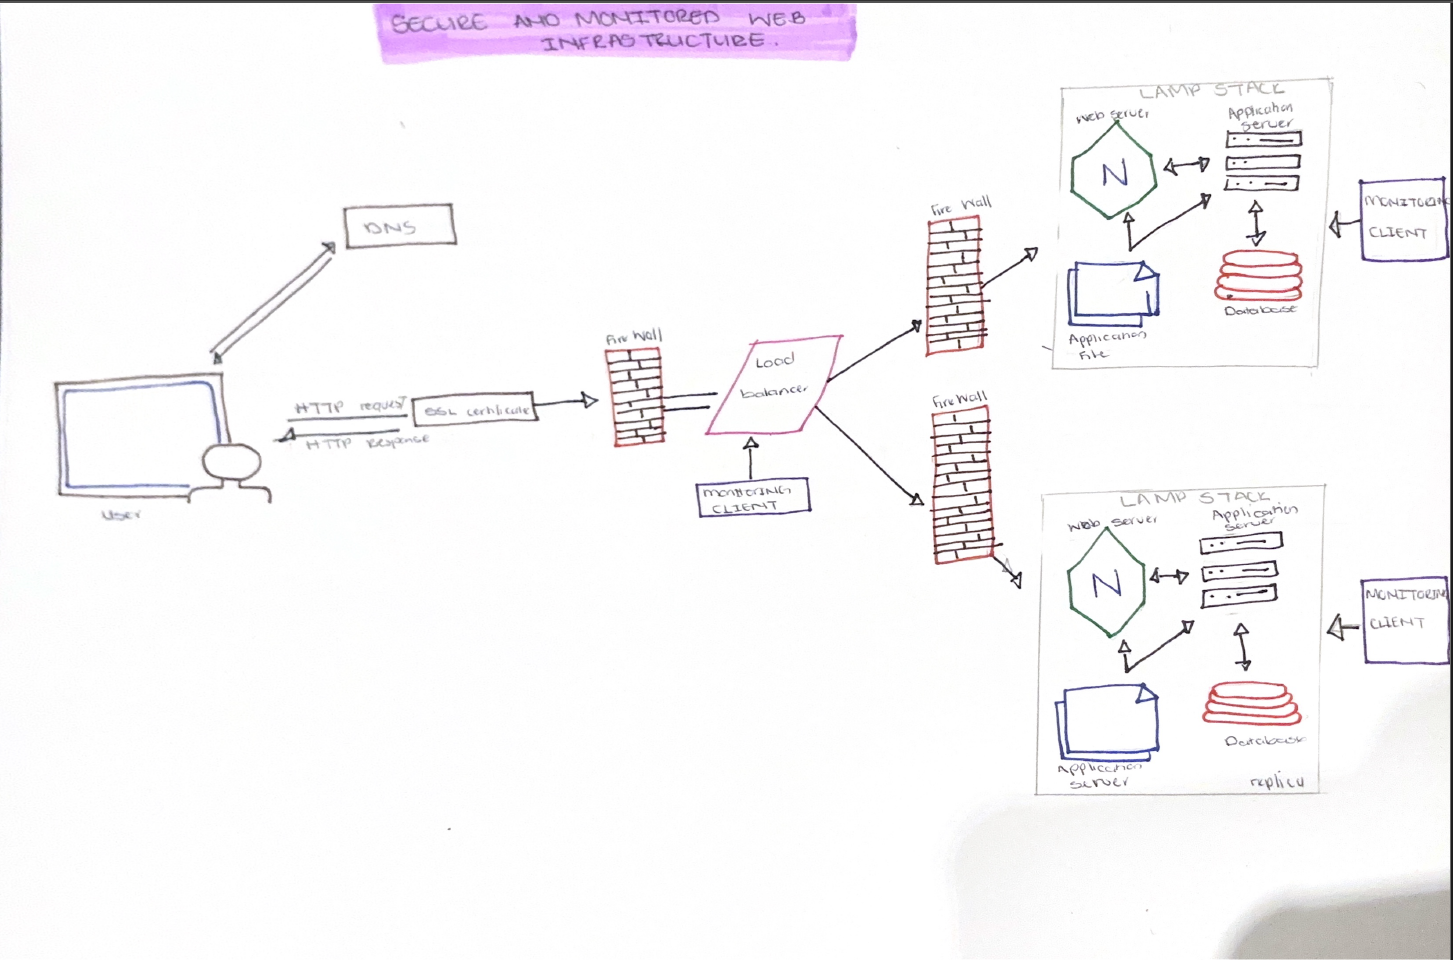 SECURE AND MONITORED WEB
INFRASTRUCTURE.
DNS
User
HTTP request
HTTP Response
SSL certificate
Fire Wall
Load
balancer
MONITORING
CLIENT
Fire Wall
Fire Wall
LAMP STACK
Web server
Application
server
N
Application
File
Database
MONITORING
CLIENT
LAMP STACK
Web server
Application
server
N
Application
server
Database
replica
MONITORING
CLIENT